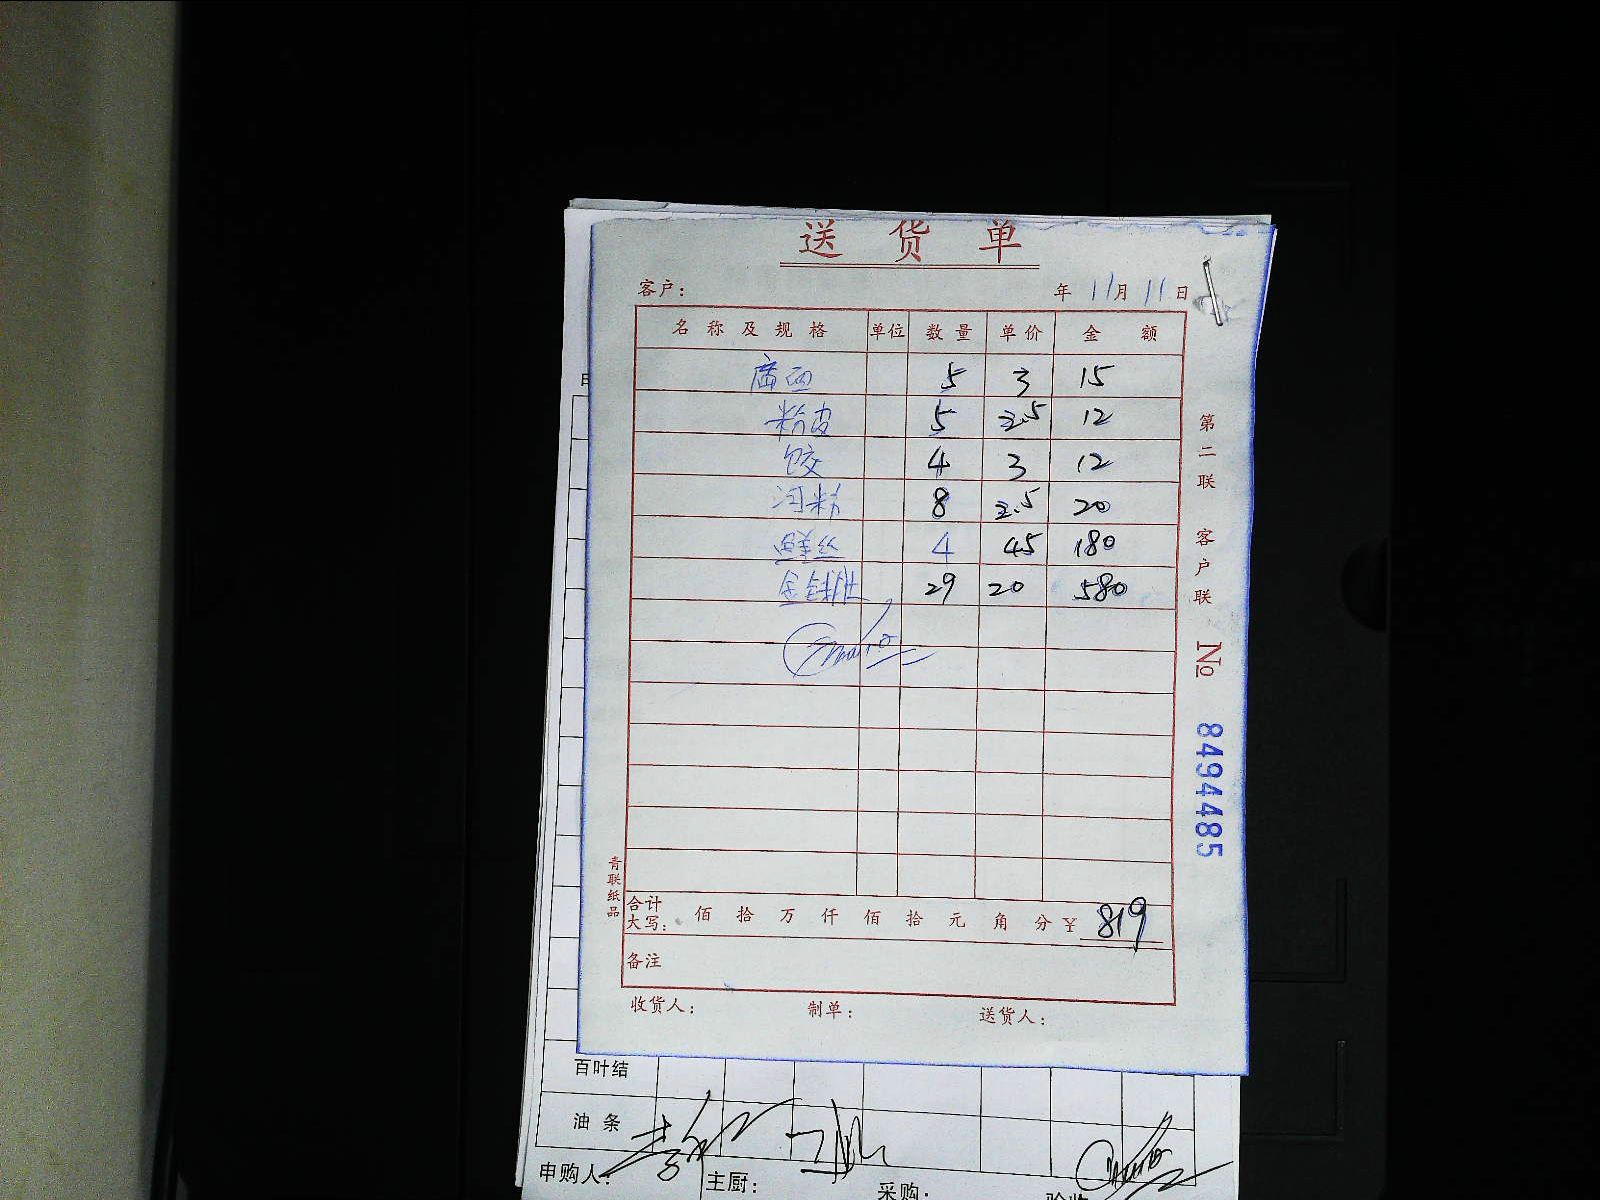 送货单
客户： 年 11月 11日
名称及规格 单位 数量 单价 金额
廣西 5 3 15
粉皮 5 2.5 12
饺 4 3 12
河粉 8 2.5 20
4 45 180
29 20 580
第二联 客户联
No 8494485
青联纸品
合计大写： 佰 拾 万 仟 佰 拾 元 角 分 ¥ 819
备注
收货人： 制单： 送货人：
百叶结
油条
申购人： 主厨： 采购：